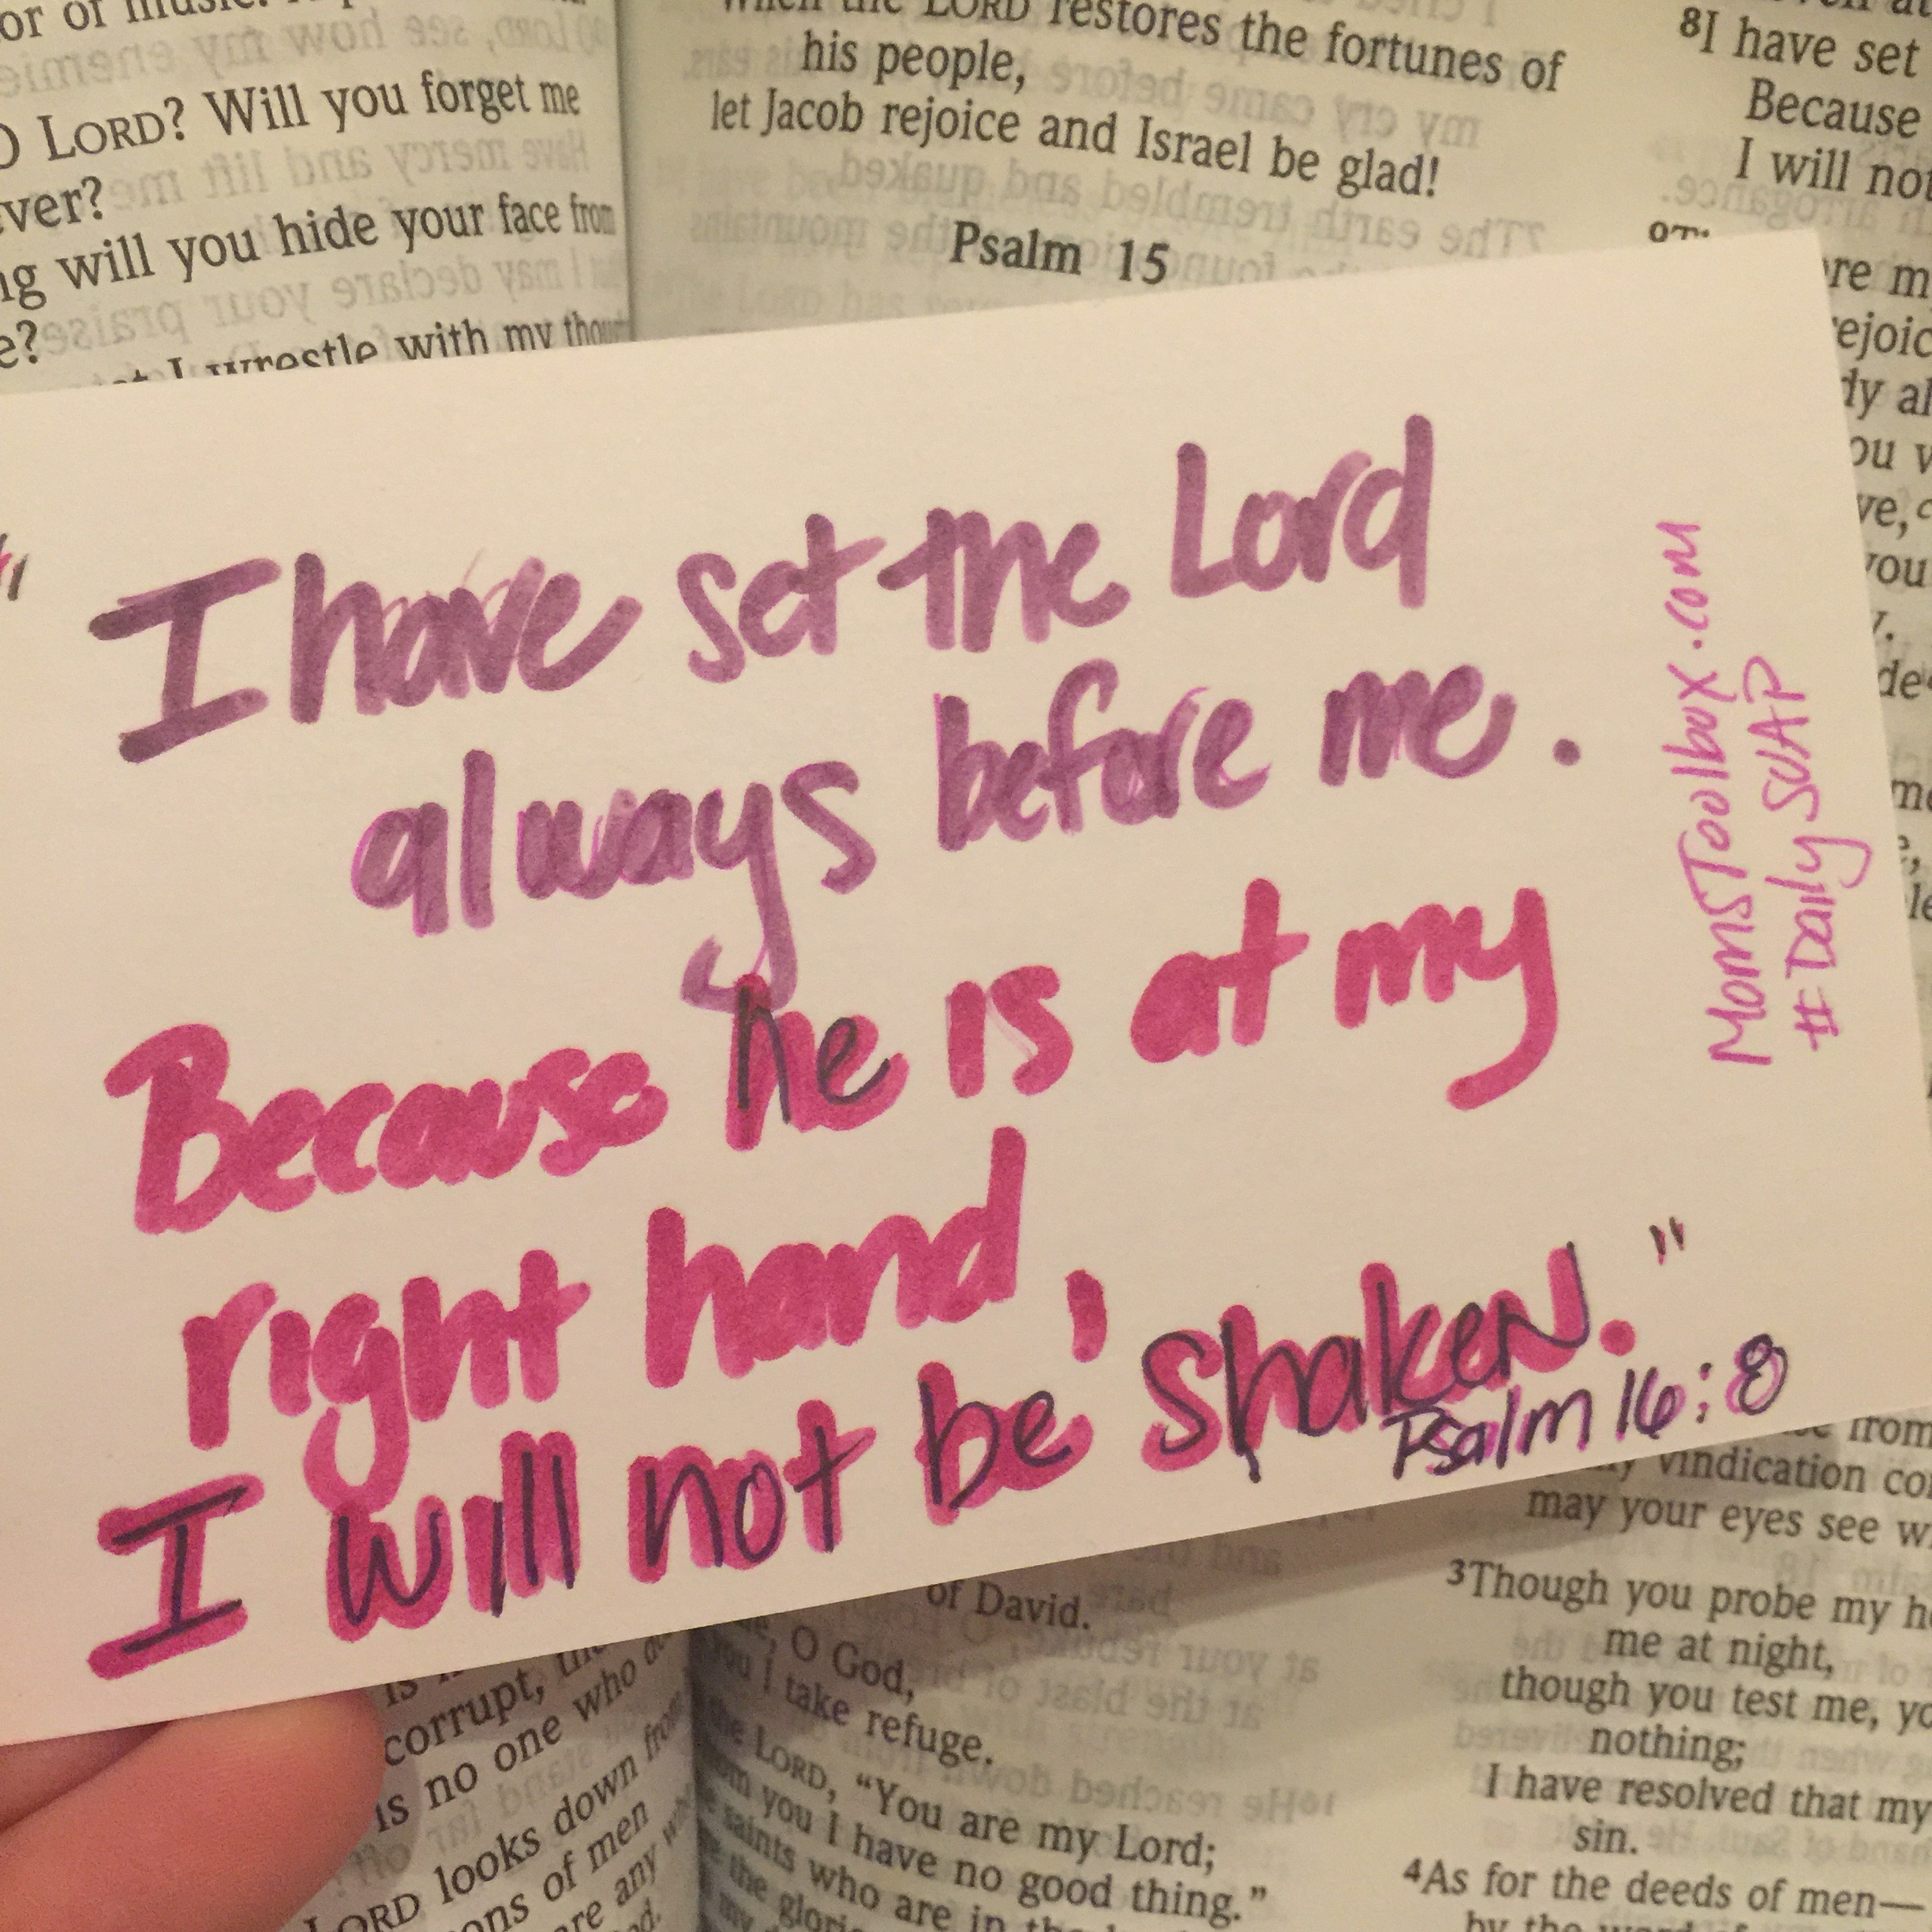 or of music.
O LORD? Will you forget me
ver?
will you hide your face from
e?
I wrestle with my
When the LORD restores the fortunes of
his people,
let Jacob rejoice and Israel be glad!
Psalm 15
8I have set
Because
I will not
"I have set the Lord
always before me.
Because he is at my
right hand,
I will not be shaken."
Psalm 16:8
MomsToolbox.com
#DailySOAP
corrupt,
is no one who
LORD looks down from
sons of men
are any
of David.
me, O God,
you I take refuge.
the LORD, "You are my Lord;
from you I have no good thing."
saints who are in the
the
from
my vindication
may your eyes see
3Though you probe my
me at night,
though you test me,
nothing;
I have resolved that my
sin.
4As for the deeds of men—
by the word of